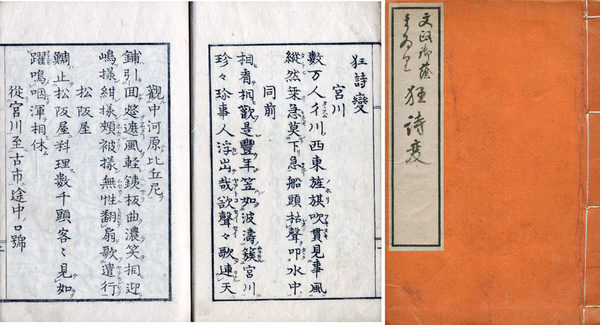 狂詩變
宮川
數万人行川西東旌旗吹貫見事風
縱然急莫下急船頭枯聲叩水中
同前
相看相歡是豐年笠如波濤簇宮川
珍々珍事人浮出哉欽聲々歌連天
觀中河原比丘尼
鋪引遮風軽銕板曲濃笑相迎
嶋様紺様頬被様無性翻扇歌遣行
松阪屋
鯛止松阪屋料理数千頭客々見如
躍鳴咽渾相休
從宮川至古市途中口號
文政御蔭
狂詩変